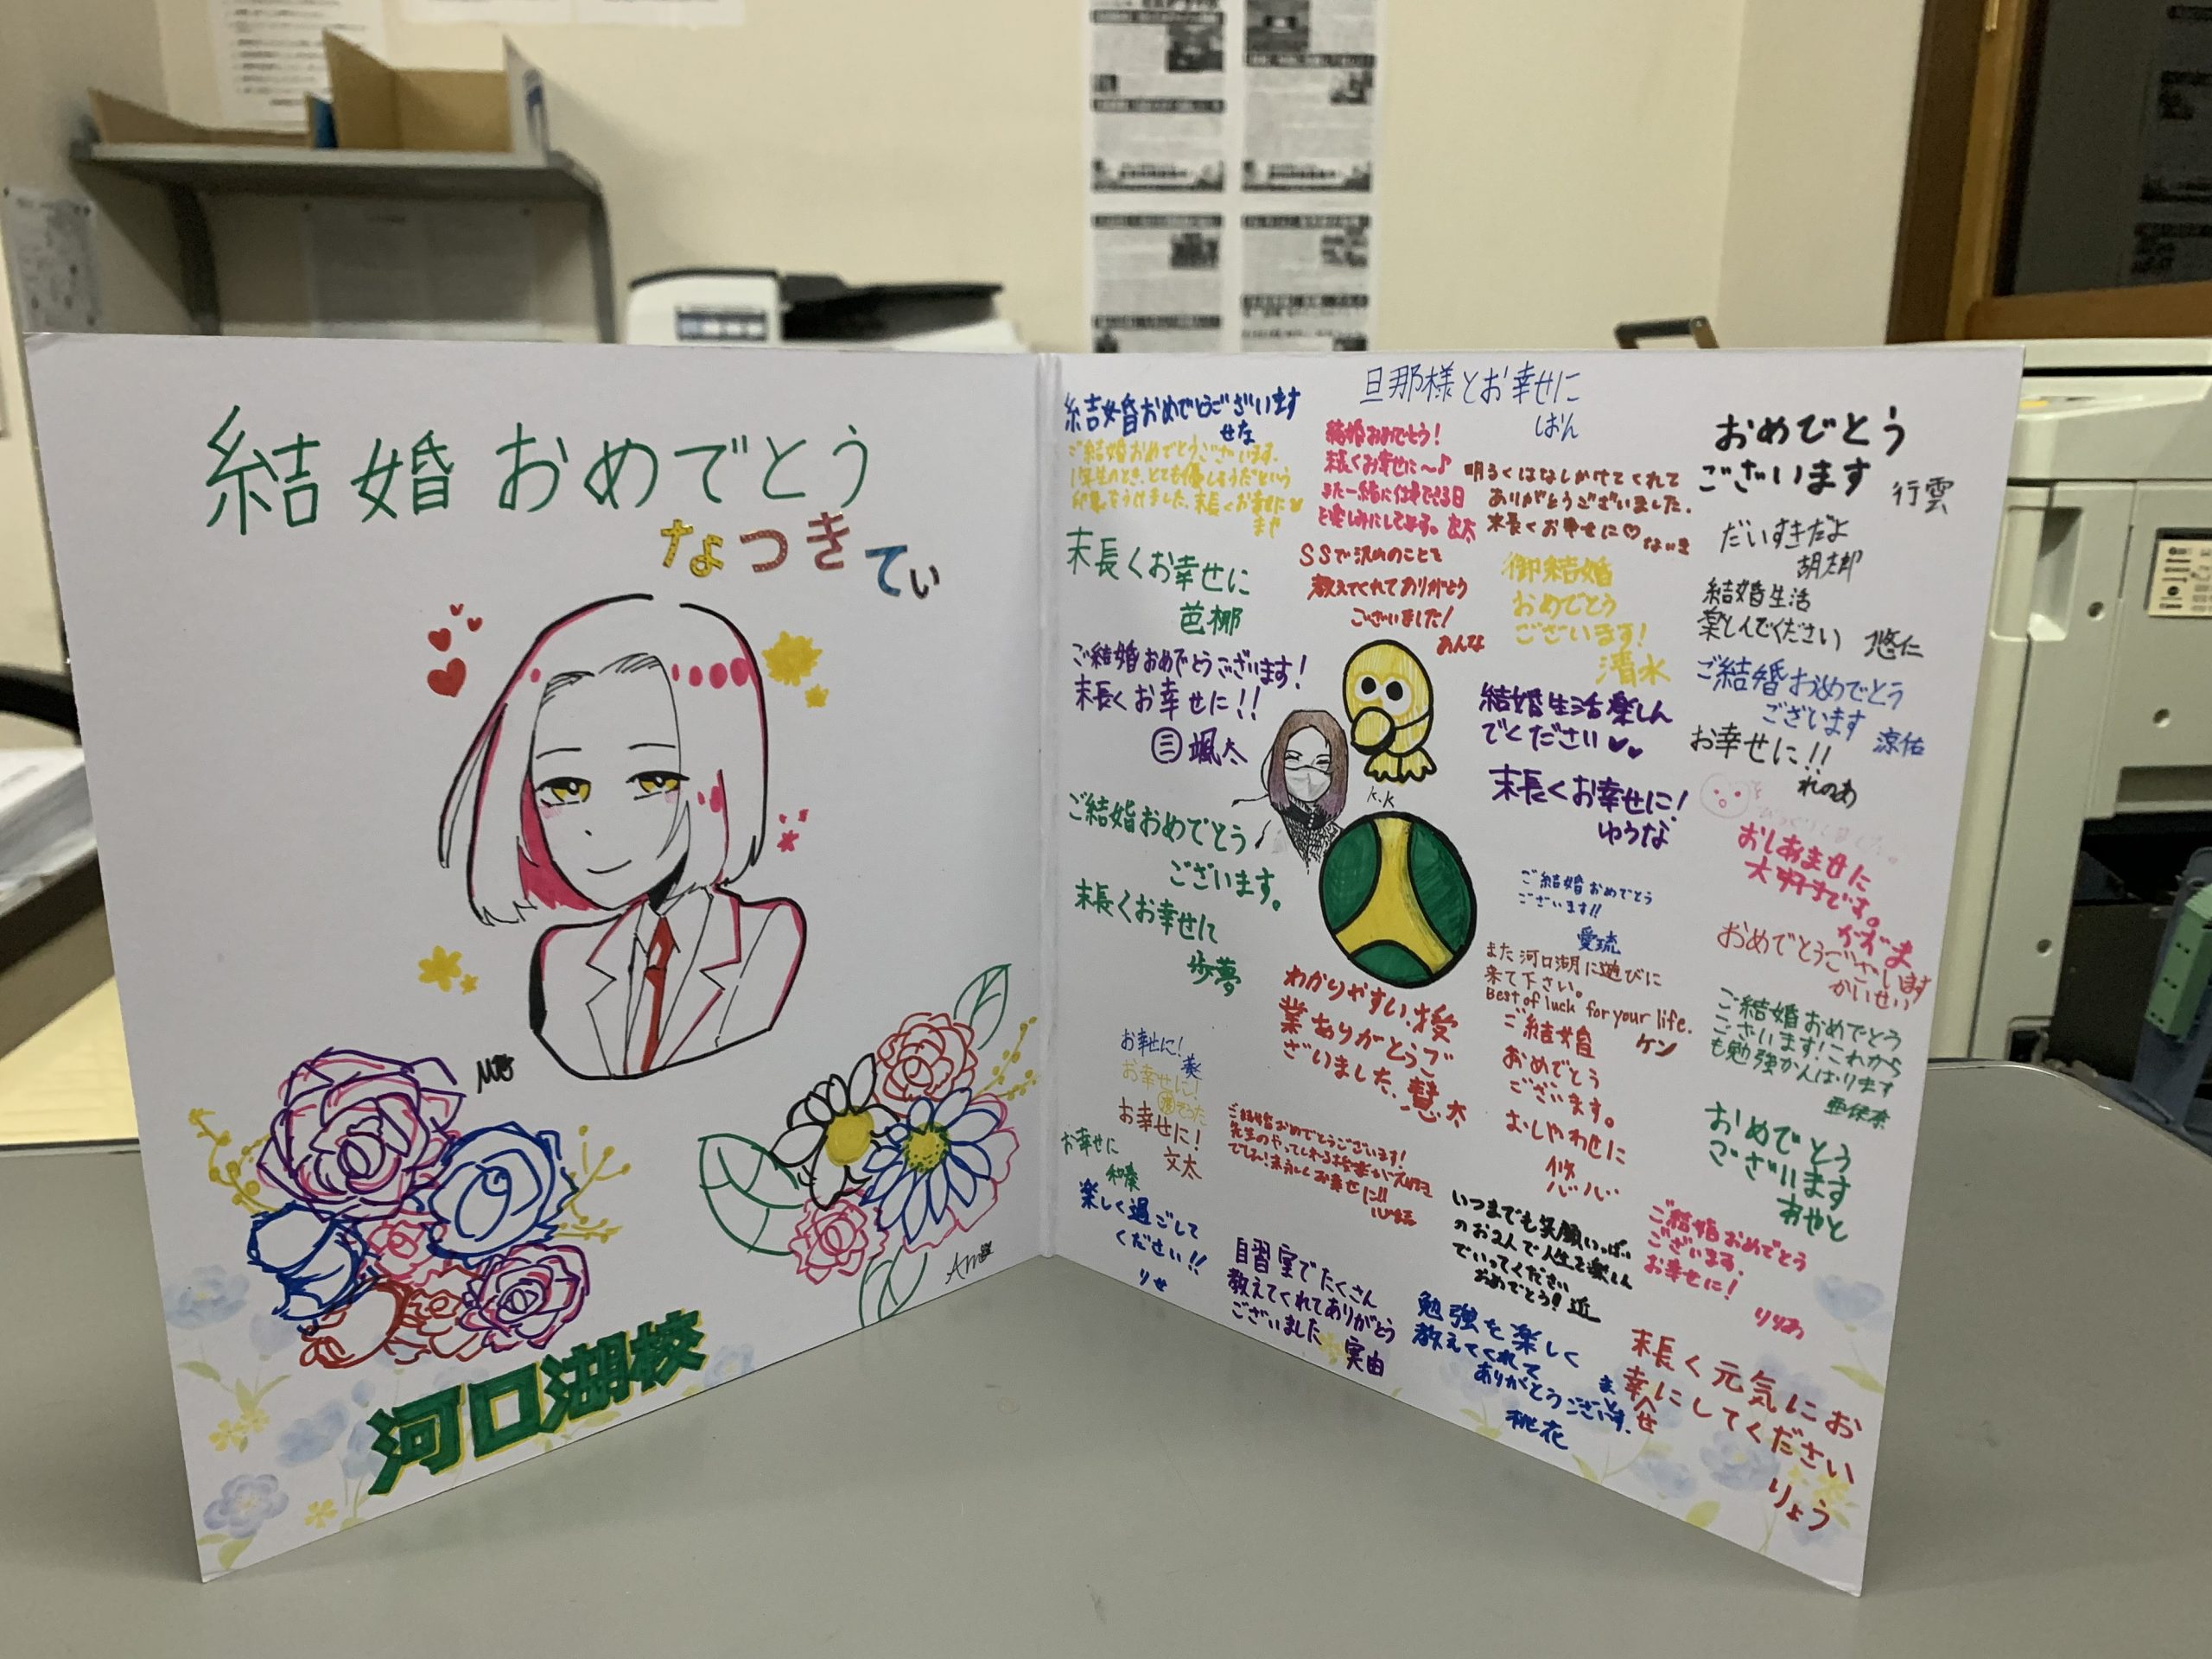 結婚おめでとう
なつきてぃ
河口湖校
結婚おめでとうございます
せな
ご結婚おめでとうございます。
1年生のとき、とても優しそうだという
印象をうけました。末長くお幸せに♡
まや
末長くお幸せに
芭椰
ご結婚おめでとうございます!
末長くお幸せに!!
三颯太
ご結婚おめでとう
ございます。
末長くお幸せに
歩夢
お幸せに!
お幸せに!
そうた
お幸せに!
文太
お幸せに
和奏
楽しく過ごして
ください!!
りせ
旦那様とお幸せに
はん
結婚おめでとう!
末長くお幸せに〜♪
また一緒に仕事できる日
を楽しみにしてます。
明るくはなしかけてくれて
ありがとうございました。
末長くお幸せに♡
SSで沢山のことを
教えてくれてありがとう
ございました!
あんな
御結婚
おめでとう
ございます!
清水
結婚生活楽しん
でください
末長くお幸せに!
ゆうな
K.K
ご結婚おめでとう
ございます!!
愛琉
また河口湖に遊びに
来て下さい。
Best of luck for your life.
ケン
わかりやすい授
業ありがとうご
ざいました。慧太
ご結婚
おめでとう
ございます。
おしやわせに
ご結婚おめでとうございます!
先生のやってくれる授業が大好き
でした!末永くお幸せに!!
自習室でたくさん
教えてくれてありがとう
ございました
実由
いつまでも笑顔いっぱい
のお2人で人生を楽しん
でいってください
おめでとう! 近
勉強を楽しく
教えてくれて
ありがとうございます。
桃花
おめでとう
ございます
行雲
だいすきだよ
胡太郎
結婚生活
楽しんでください
悠仁
ご結婚おめでとう
ございます
涼佑
お幸せに!!
れのあ
おしあませに
大好きです。
かずま
おめでとうございます
かいせい
ご結婚おめでとう
ございます!これから
も勉強がんばります
亜保奈
おめでとう
ございます
あやと
ご結婚おめでとう
ございます。
お幸せに!
りりあ
末長く元気にお
幸せにしてください
りょう